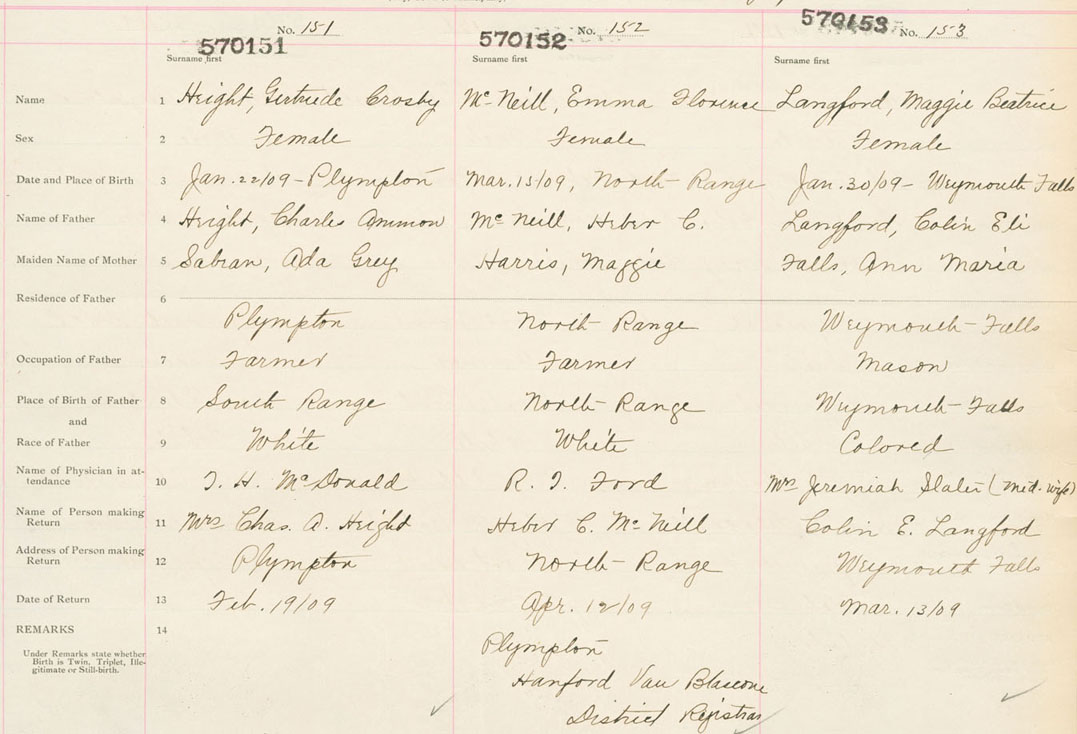 No. 151 No. 152 No. 153
570151 570152 570153
Surname first Surname first Surname first
Name 1 Height, Gertrude Crosby McNeill, Emma Florence Langford, Maggie Beatrice
Sex 2 Female Female Female
Date and Place of Birth 3 Jan. 22/09 - Plympton Mar. 15/09, North Range Jan. 30/09 - Weymouth Falls
Name of Father 4 Height, Charles Ammon McNeill, Heber C. Langford, Colin Eli
Maiden Name of Mother 5 Sabean, Ada Grey Harris, Maggie Falls, Ann Maria
Residence of Father 6
Plympton North Range Weymouth Falls
Occupation of Father 7 Farmer Farmer Mason
Place of Birth of Father 8 South Range North Range Weymouth Falls
and
Race of Father 9 White White Colored
Name of Physician in at-
tendance 10 J. H. McDonald R. J. Ford Mrs Jeremiah Slater (Mid. wife)
Name of Person making
Return 11 Mrs Chas. A. Height Heber C. McNeill Colin E. Langford
Address of Person making
Return 12 Plympton North Range Weymouth Falls
Date of Return 13 Feb. 19/09 Apr. 12/09 Mar. 13/09
REMARKS 14
Under Remarks state whether
Birth is Twin, Triplet, Ille-
gitimate or Still-birth.
Plympton
Hanford Van Blarcom
District Registrar